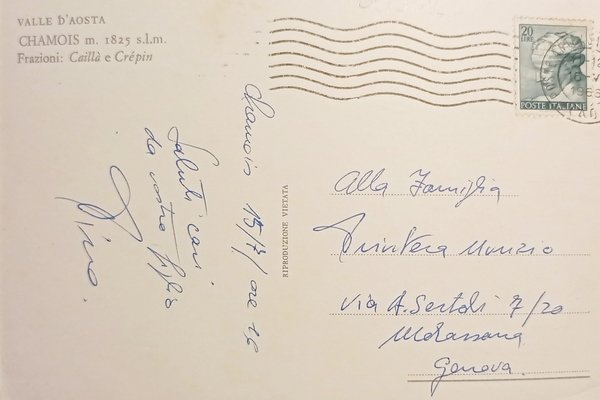 VALLE D'AOSTA
CHAMOIS m. 1825 s.l.m.
Frazioni: Caillà e Crépin
Chamois 15/7/ ore 16
Saluti cari
da vostro figlio
Dino.
RIPRODUZIONE VIETATA
20
LIRE
POSTE ITALIANE
Alla Famiglia
Printera Munzio
Via A. Sertoli 7/20
Molassana
Genova.